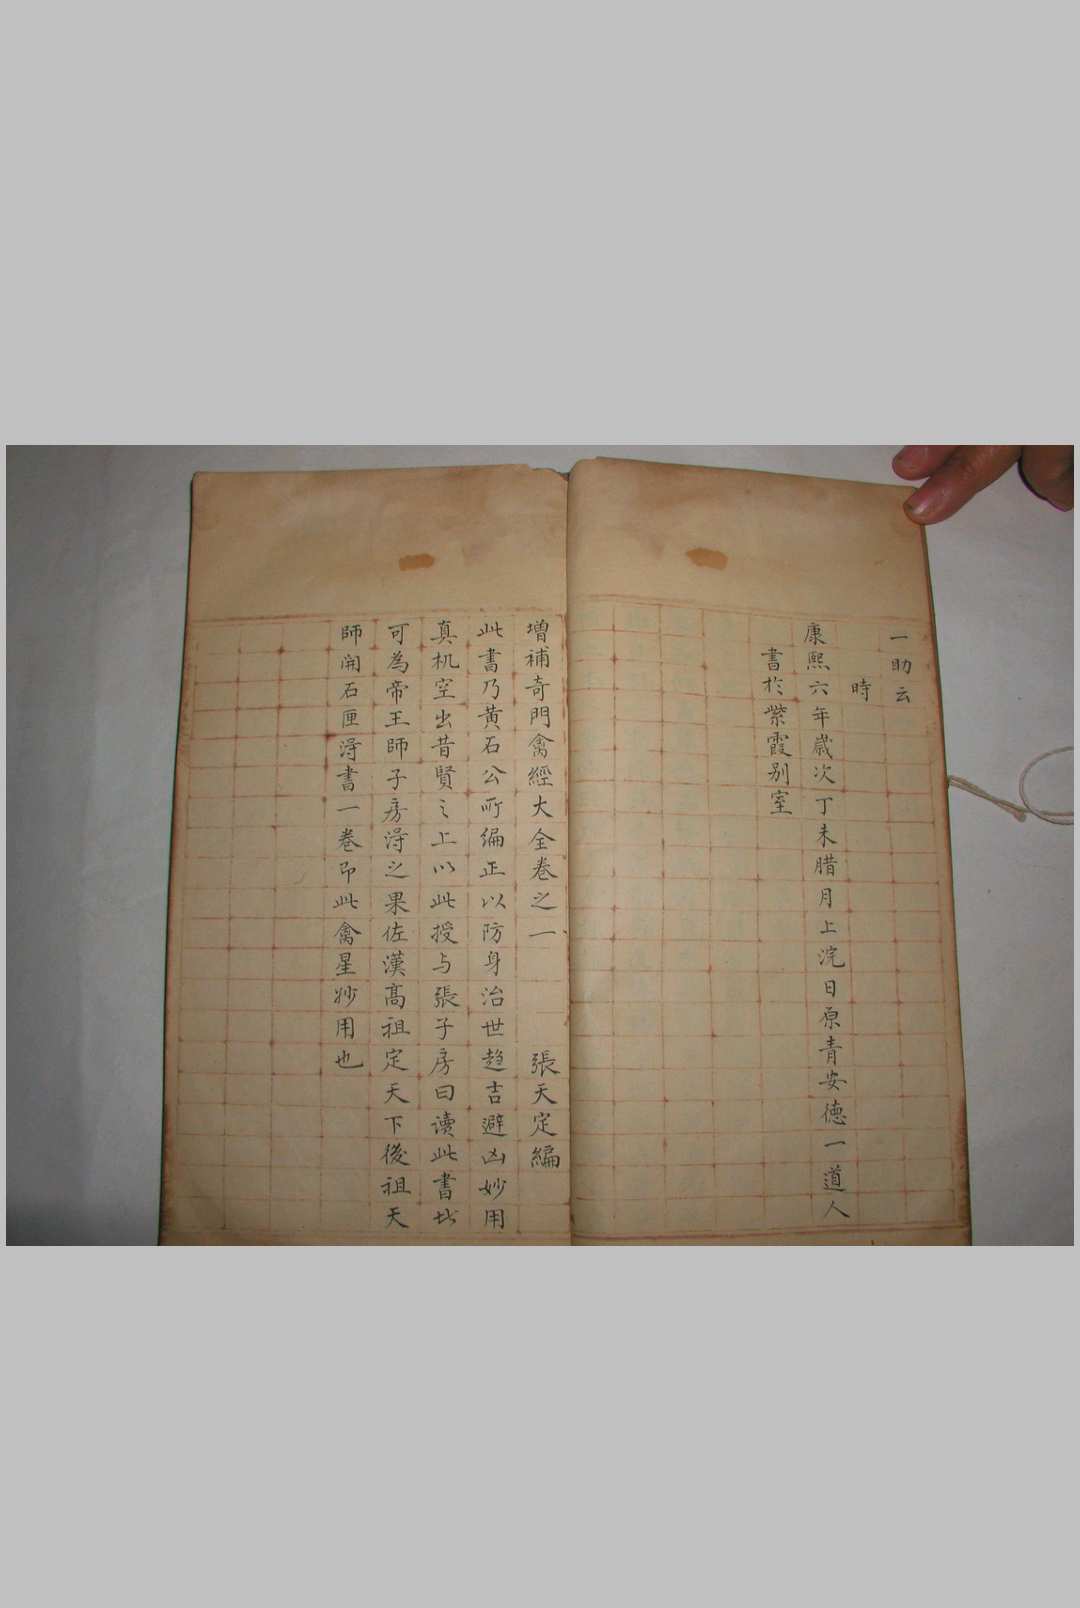 一助云
時
康熙六年歲次丁未腊月上浣日原青安德一道人
書於紫霞別室
增補奇門禽經大全卷之一 張天定編
此書乃黃石公所編正以防身治世趋吉避凶妙用
真机空出昔賢之上以此授与張子房曰讀此書
可為帝王師子房淂之果佐漢高祖定天下後祖天
師開石匣淂書一卷即此禽星妙用也